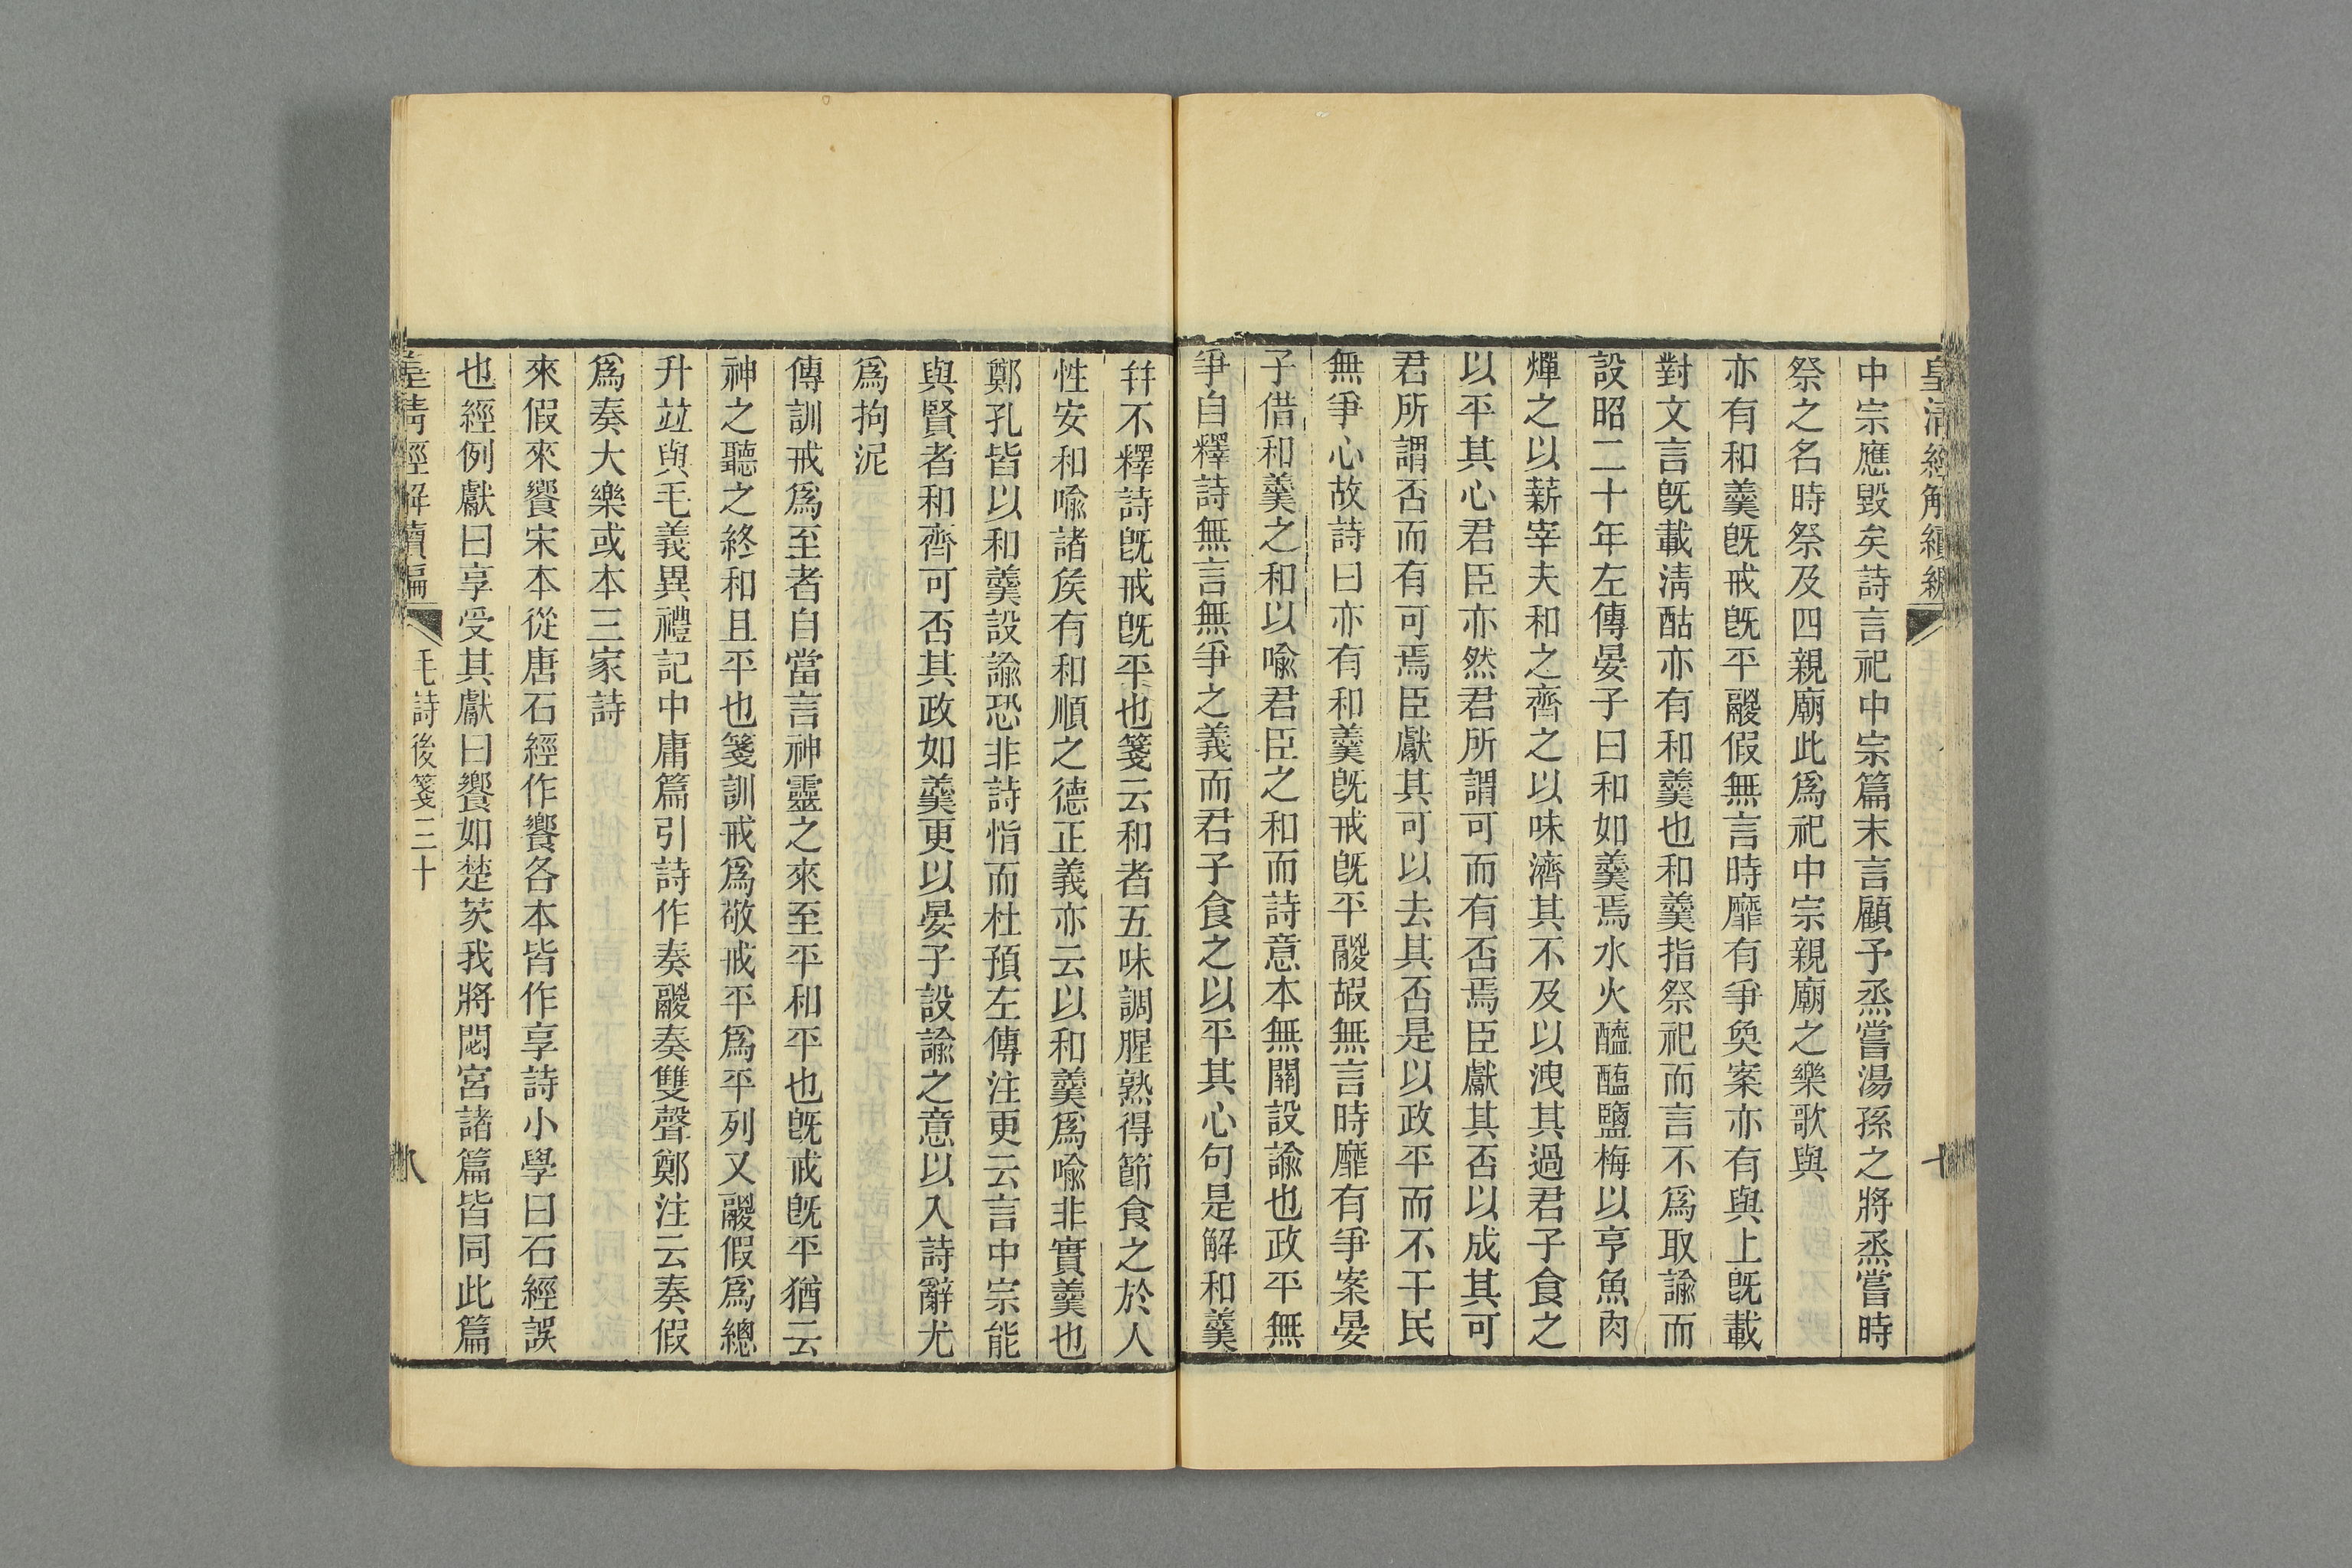 皇清經解續編
中宗應毀矣詩言祀中宗篇末言顧予烝嘗湯孫之將烝嘗時
祭之名時祭及四親廟此爲祀中宗親廟之樂歌與
亦有和羹旣戒旣平鬷假無言時靡有爭奐案亦有與上旣載
對文言旣載淸酤亦有和羹也和羹指祭祀而言不爲取諭而
設昭二十年左傳晏子曰和如羹焉水火醯醢鹽梅以亨魚肉
燀之以薪宰夫和之齊之以味濟其不及以洩其過君子食之
以平其心君臣亦然君所謂可而有否焉臣獻其否以成其可
君所謂否而有可焉臣獻其可以去其否是以政平而不干民
無爭心故詩曰亦有和羹旣戒旣平鬷嘏無言時靡有爭案晏
子借和羹之和以喩君臣之和而詩意本無關設諭也政平無
爭自釋詩無言無爭之義而君子食之以平其心句是解和羹
幷不釋詩旣戒旣平也箋云和者五味調腥熟得節食之於人
性安和喩諸矦有和順之德正義亦云以和羹爲喩非實羹也
鄭孔皆以和羹設諭恐非詩恉而杜預左傳注更云言中宗能
與賢者和齊可否其政如羹更以晏子設諭之意以入詩辭尤
爲拘泥
傳訓戒爲至者自當言神靈之來至平和平也旣戒旣平猶云
神之聽之終和且平也箋訓戒爲敬戒平爲平列又鬷假爲總
升竝與毛義異禮記中庸篇引詩作奏鬷奏雙聲鄭注云奏假
爲奏大樂或本三家詩
來假來饗宋本從唐石經作饗各本皆作享詩小學曰石經誤
也經例獻曰享受其獻曰饗如楚茨我將閟宮諸篇皆同此篇
皇淸經解續編
毛詩後箋三十